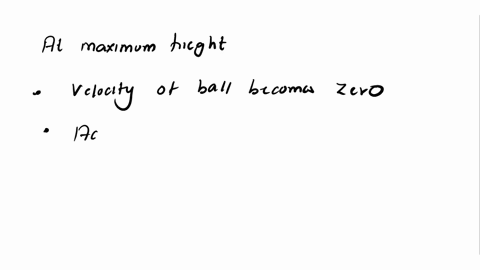 At maximum hieght
• Velocity of ball becomes zero
• Ac